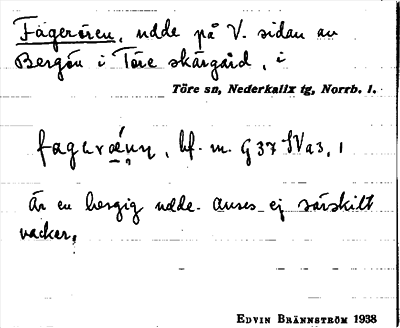 Fågerören, udde på V. sidan av
Bergön i Töre skärgård, i
Töre sn, Nederkalix tg, Norrb. l.
bf. m. G 37 SV a 3, 1
Är en bergig udde. Anses ej särskilt
vacker.
EDVIN BRÄNNSTRÖM 1938